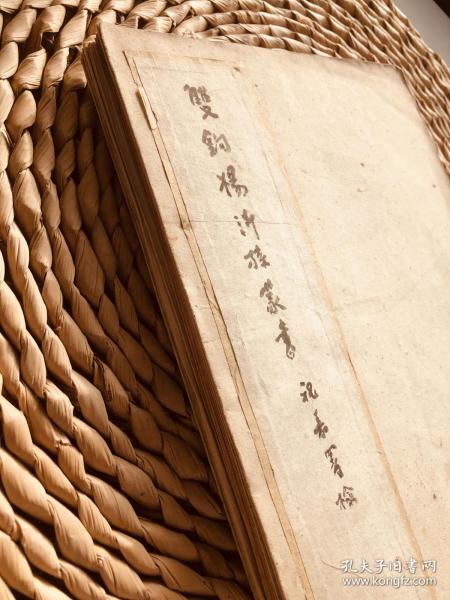 雙鈎楊沂孫篆書 祝嘉署檢
孔夫子旧书网
www.kongfz.com